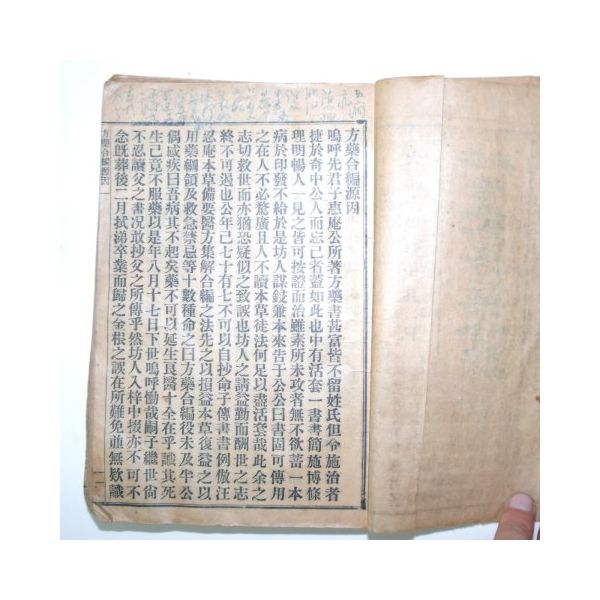 方藥合編源因
嗚呼先君子惠庵公所著方藥書甚富皆不留姓氏但令施治者
捷於奇中公人而忘己者蓋如此也中有活套一書書簡施博條
理明暢人一見之皆可按證而治雖素所未攻者無不欲蓄一本
病於印發不給於是坊人謀鋟兼本來告于公公曰書固可傳用
之在人不必驚廣且人不讀本草徒法何足以盡活套哉此余之
志切救世而亦猶恐疑似之致誤也坊人之請益勤而酬世之志
終不可遏也公年已七十有七不可以自抄命子傳書書例倣汪
忍庵本草備要醫方集解合編之法先之以損益本草復益之以
用藥綱領及救急禁忌等十數種命之曰方藥合編役未及半公
偶感疾曰吾病其不起矣藥不可以延生良醫十全在乎識其死
生已竟不服藥以是年八月十七日下世嗚呼慟哉嗣子繼世尙
不忍讀父之書况敢抄父之所傳乎然坊人入梓中掇亦不可不
念旣葬後二月拭涕卒業而歸之金根之誤在所難免並無欵識
方藥合編源因